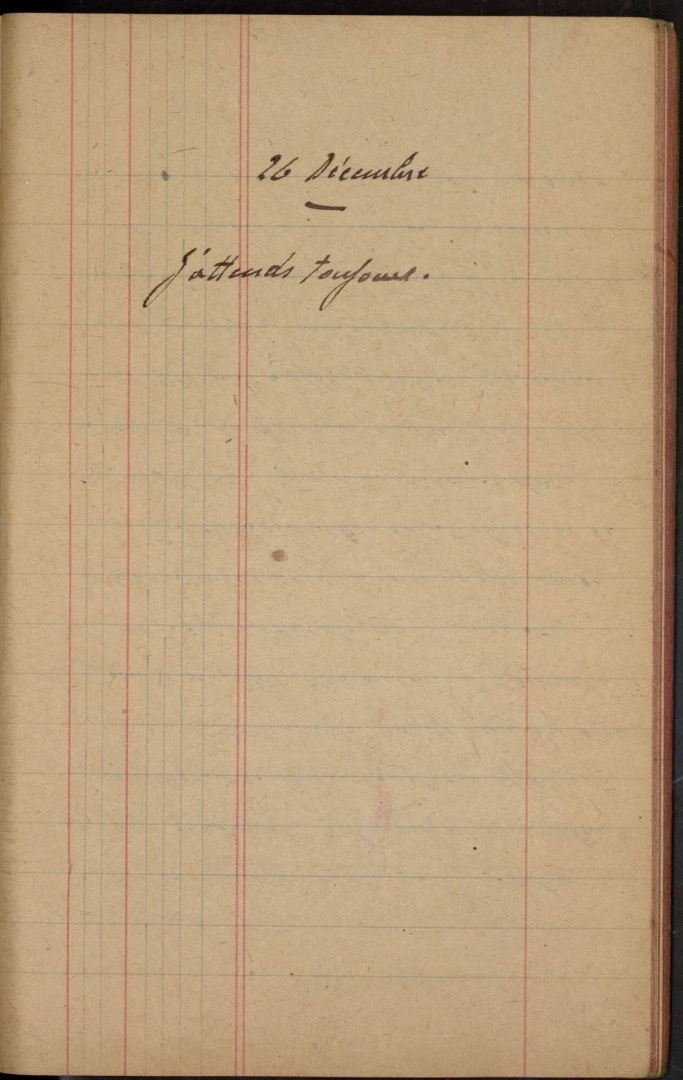 26 Décembre
J'attends toujours.